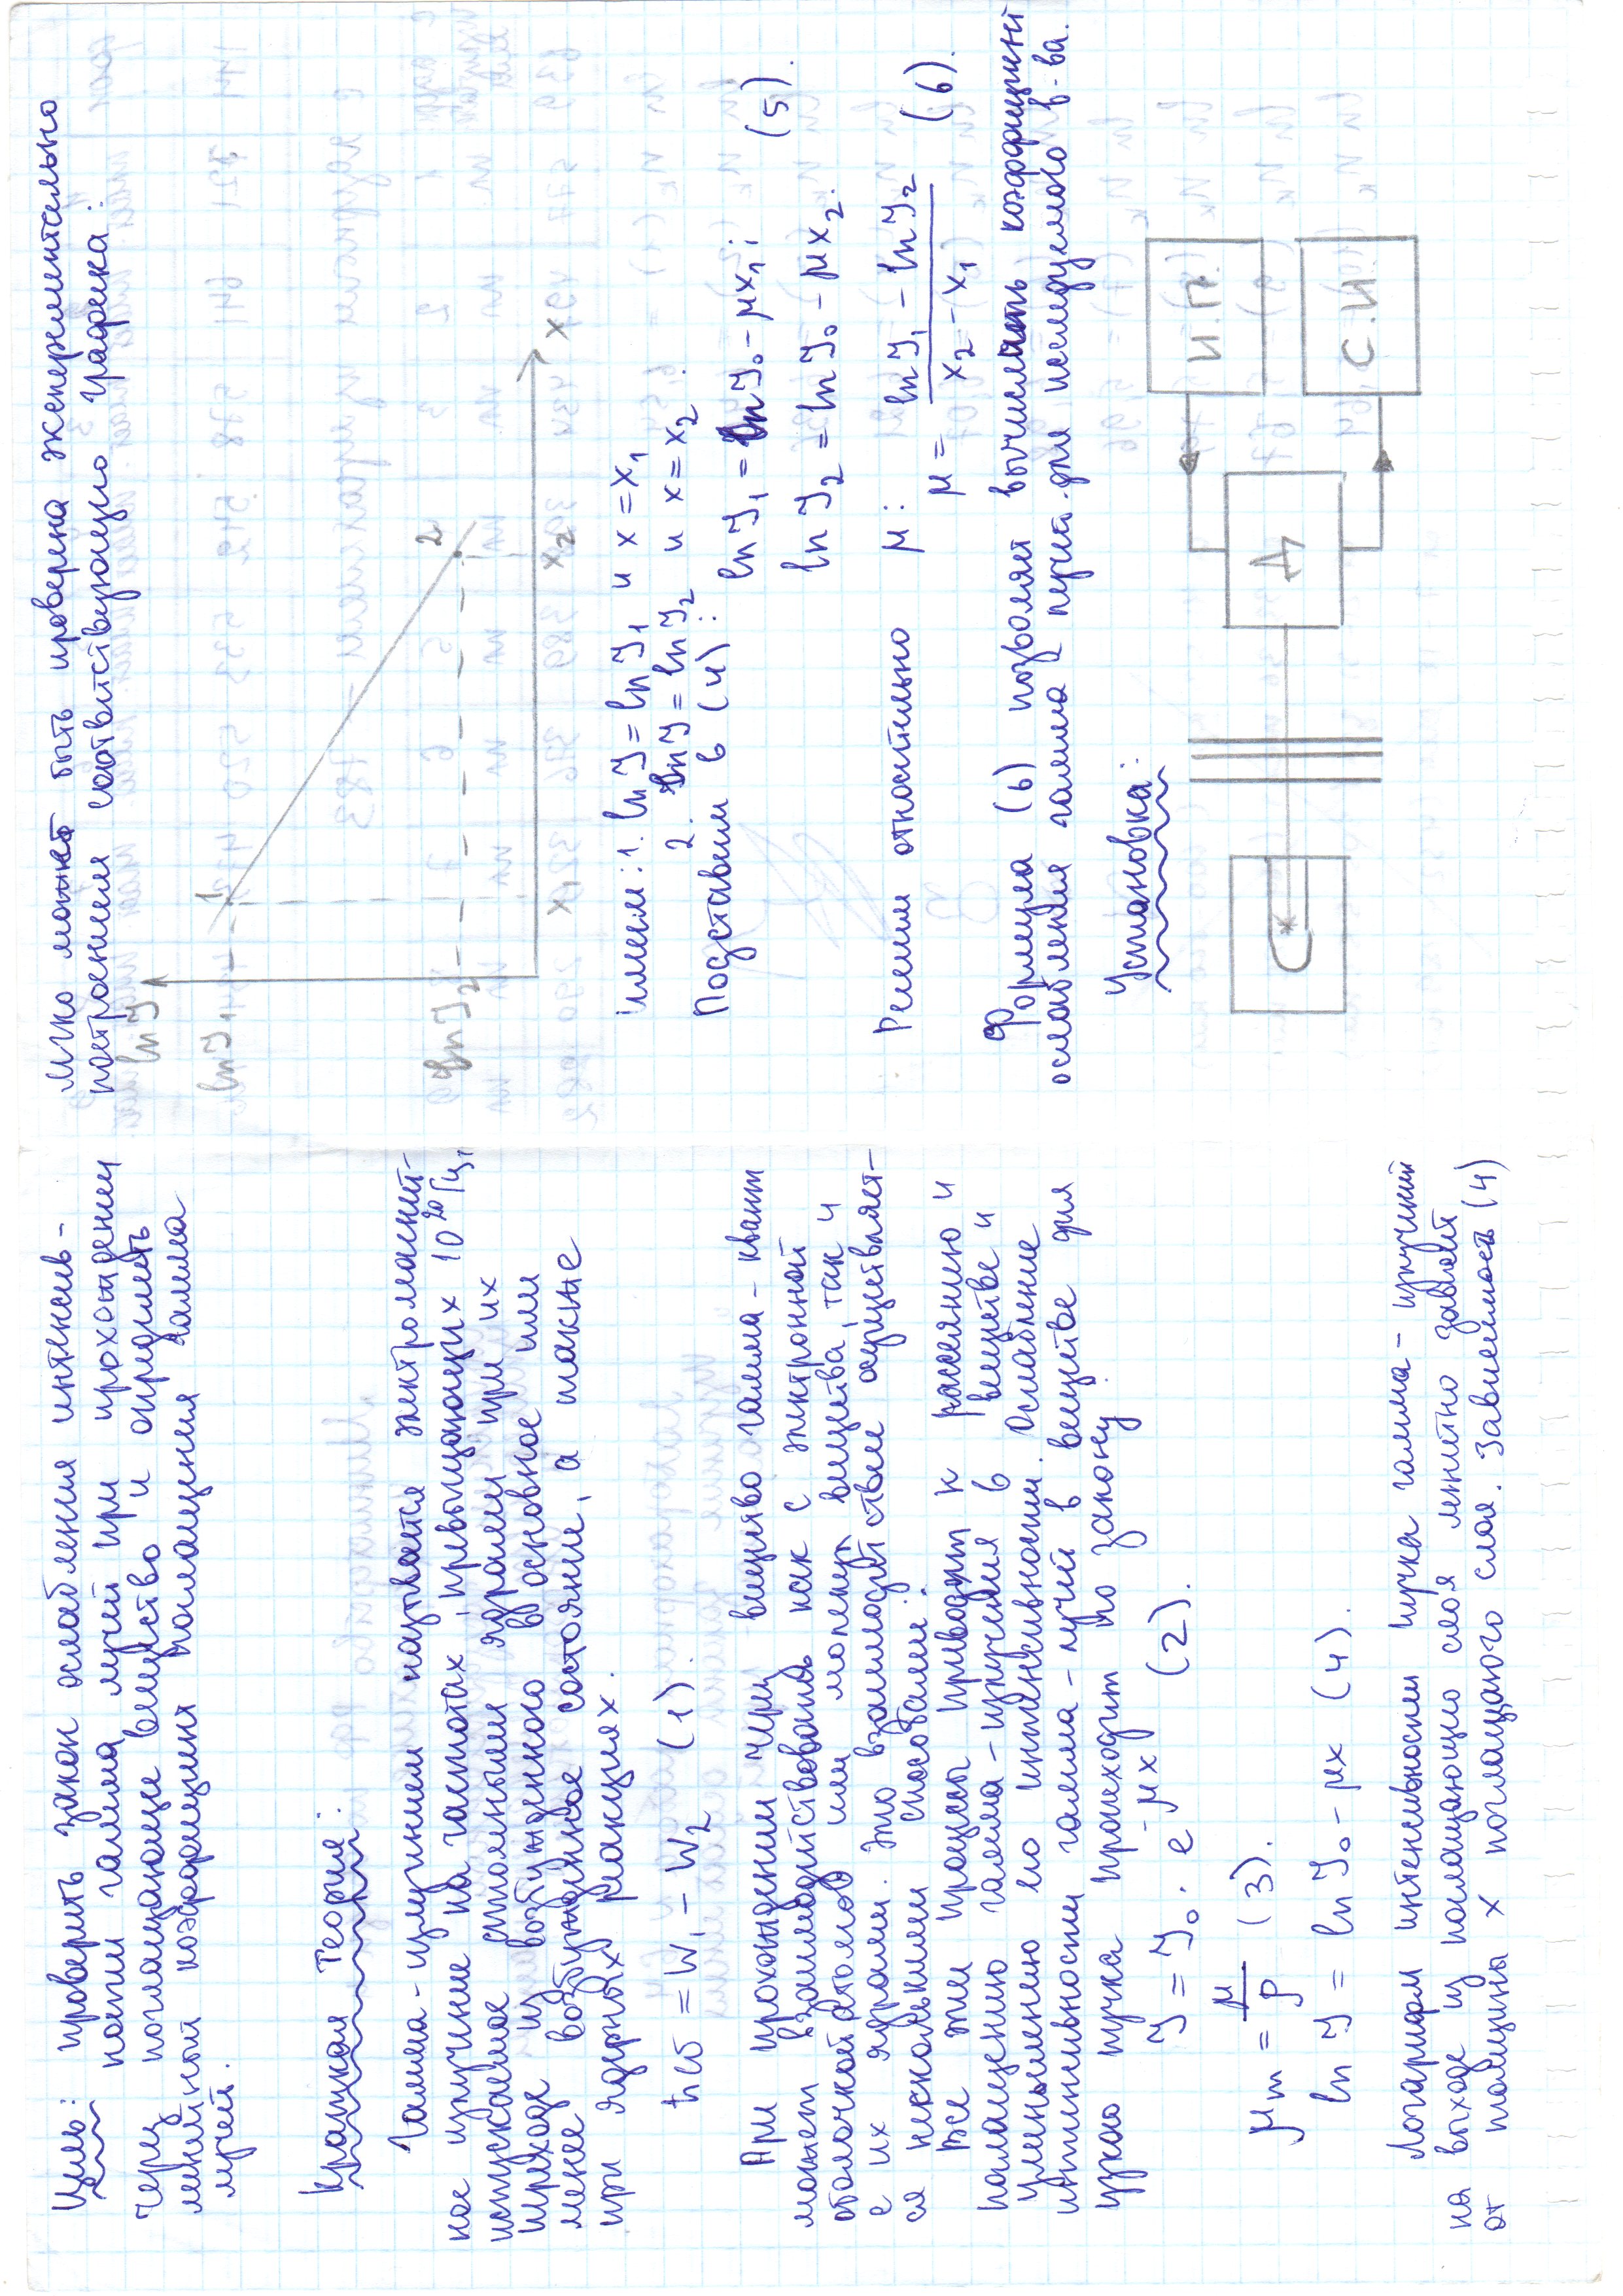 Цель: проверить закон ослабления интенсив-
ности гамма лучей при прохождении
через поглащающие вещество и определить
линейный коэффициент поглащения гамма
лучей.
Краткая теория:
Гамма-излучением называется электромагнит-
ное излучение на частотах, превышающих 10²⁰ Гц,
испускаемое атомными ядрами при их
переходе из возбужденного в основное или
менее возбужденное состояние, а также
при ядерных реакциях.
ħω = W₁ - W₂ (1).
При прохождении через вещество гамма-квант
может взаимодействовать как с электронной
оболочкой атомов или молекул вещества, так и
с их ядрами. Это взаимодействие осуществляет-
ся несколькими способами:
Все эти процессы приводят к рассеянию и
поглащению гамма-излучения в веществе и
уменьшению его интенсивности. Ослабление
интенсивности гамма-лучей в веществе для
узкого пучка происходит по закону:
J = J₀ · e^(-μx) (2).
μm = μ/ρ (3).
ln J = ln J₀ - μx (4).
Логарифм интенсивности пучка гамма-излучений
на выходе из поглащающего слоя линейно зависит
от толщины x поглащаюго слоя. Зависимость (4)
легко может быть проверена экспериментально
построением соответствующего графика:
ln J
ln J₁
1
ln J₂
2
x₁
x₂
x
имеем: 1. ln J = ln J₁ и x = x₁
2. ln J = ln J₂ и x = x₂.
Подставим в (4):
ln J₁ = ln J₀ - μx₁;
(5).
ln J₂ = ln J₀ - μx₂.
Решим относительно μ:
μ = (ln J₁ - ln J₂)/(x₂ - x₁) (6).
Формула (6) позволяет вычислить коэффициент
ослабления гамма-лучей для исследуемого в-ва.
Установка:
И.П.
Д
С.И.